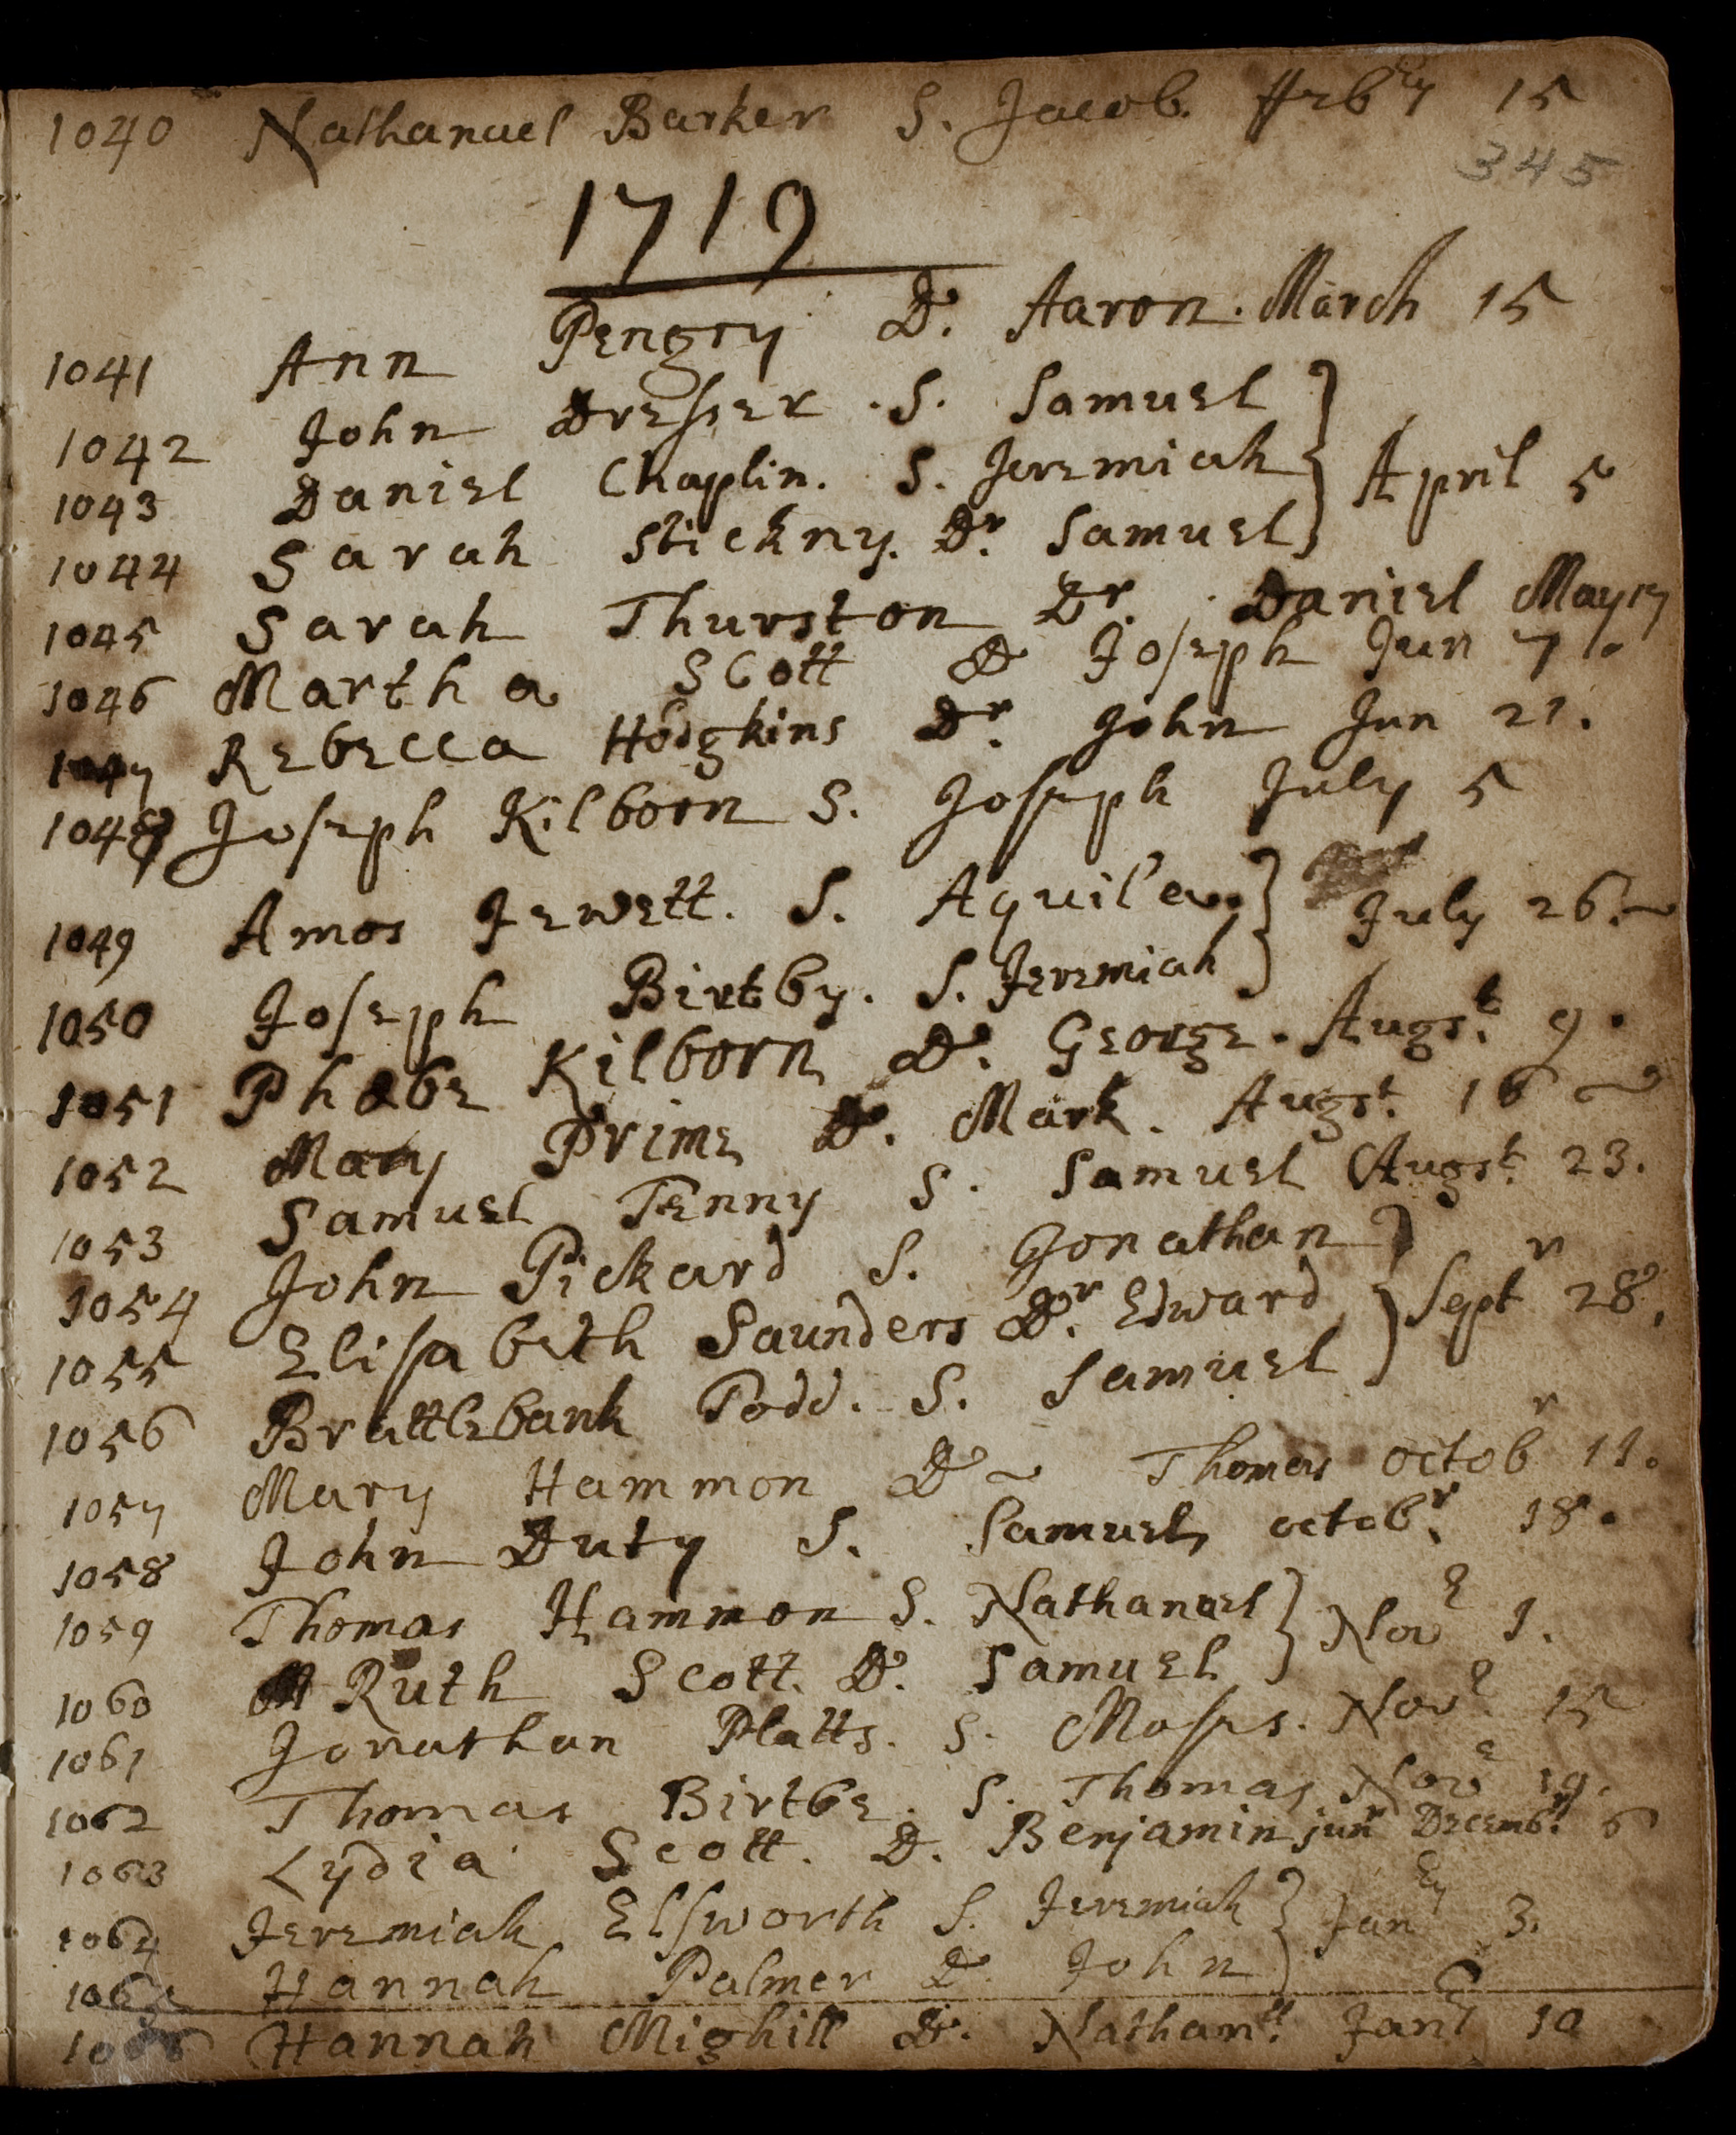 1040 Nathanael Barker S. Jacob. Febry 15
345
1719
1041 Ann Pengry D. Aaron. March 15
1042 John Dresser . S. Samuel
1043 Daniel Chaplin. S. Jeremiah } April 5
1044 Sarah Stickny. Dr. Samuel
1045 Sarah Thurston Dr. Daniel May 17
1046 Martha Scott D Joseph Jun 7
1047 Rebecca Hodgkins Dr. John Jun 21.
1048 Joseph Kilborn S. Joseph July 5
1049 Amos Jewett. S. Aquila. } July 26.
1050 Joseph Birtby. S. Jeremiah
1051 Phebe Kilborn D. George. Augst. 9.
1052 Mary Prime D. Mark. Augst. 16
1053 Samuel Tenny S. Samuel Augst. 23.
1054 John Pickard S. Jonathan
1055 Elisabeth Saunders Dr. Edward } Septr 28.
1056 Brattlebank Todd. S. Samuel
1057 Mary Hammon D Thomas octobr 11.
1058 John Duty S. Samuel octobr. 18.
1059 Thomas Hammon S. Nathanael } Nove 1.
1060 Ruth Scott. D. Samuel
1061 Jonathan Platts. S. Moses. Nove. 15
1062 Thomas Birtbe. S. Thomas Nove 19.
1063 Lydia Scott. D. Benjamin junr Decembr. 6
1064 Jeremiah Elsworth S. Jeremiah } Janey 3.
1065 Hannah Palmer D John
1066 Hannah Mighill D. Nathanll. Janry 10